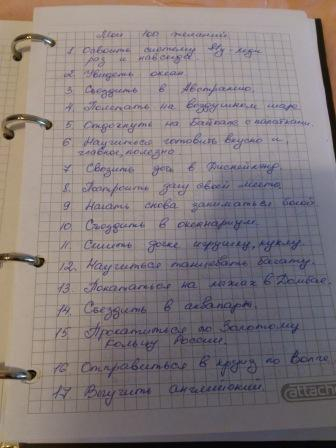 Мои 100 желаний.
1. Освоить систему Флу-леди
раз и навсегда
2. Увидеть океан
3. Съездить в Австралию.
4. Полетать на воздушном шаре
5. Отдохнуть на Байкале с палатками.
6 Научиться готовить вкусно и,
главное, полезно
7 Свозить дочь в Диснейлэнд.
8. Построить дачу своей мечты
9 Начать снова заниматься йогой
10. Съездить в океанариум.
11. Сшить дочке игрушку, куклу.
12. Научиться танцевать бачату.
13. Покататься на лыжах в Домбае.
14. Съездить в аквапарк.
15 Прокатиться по Золотому
кольцу России.
16 Отправиться в круиз по Волге
17 Выучить английский.
attache